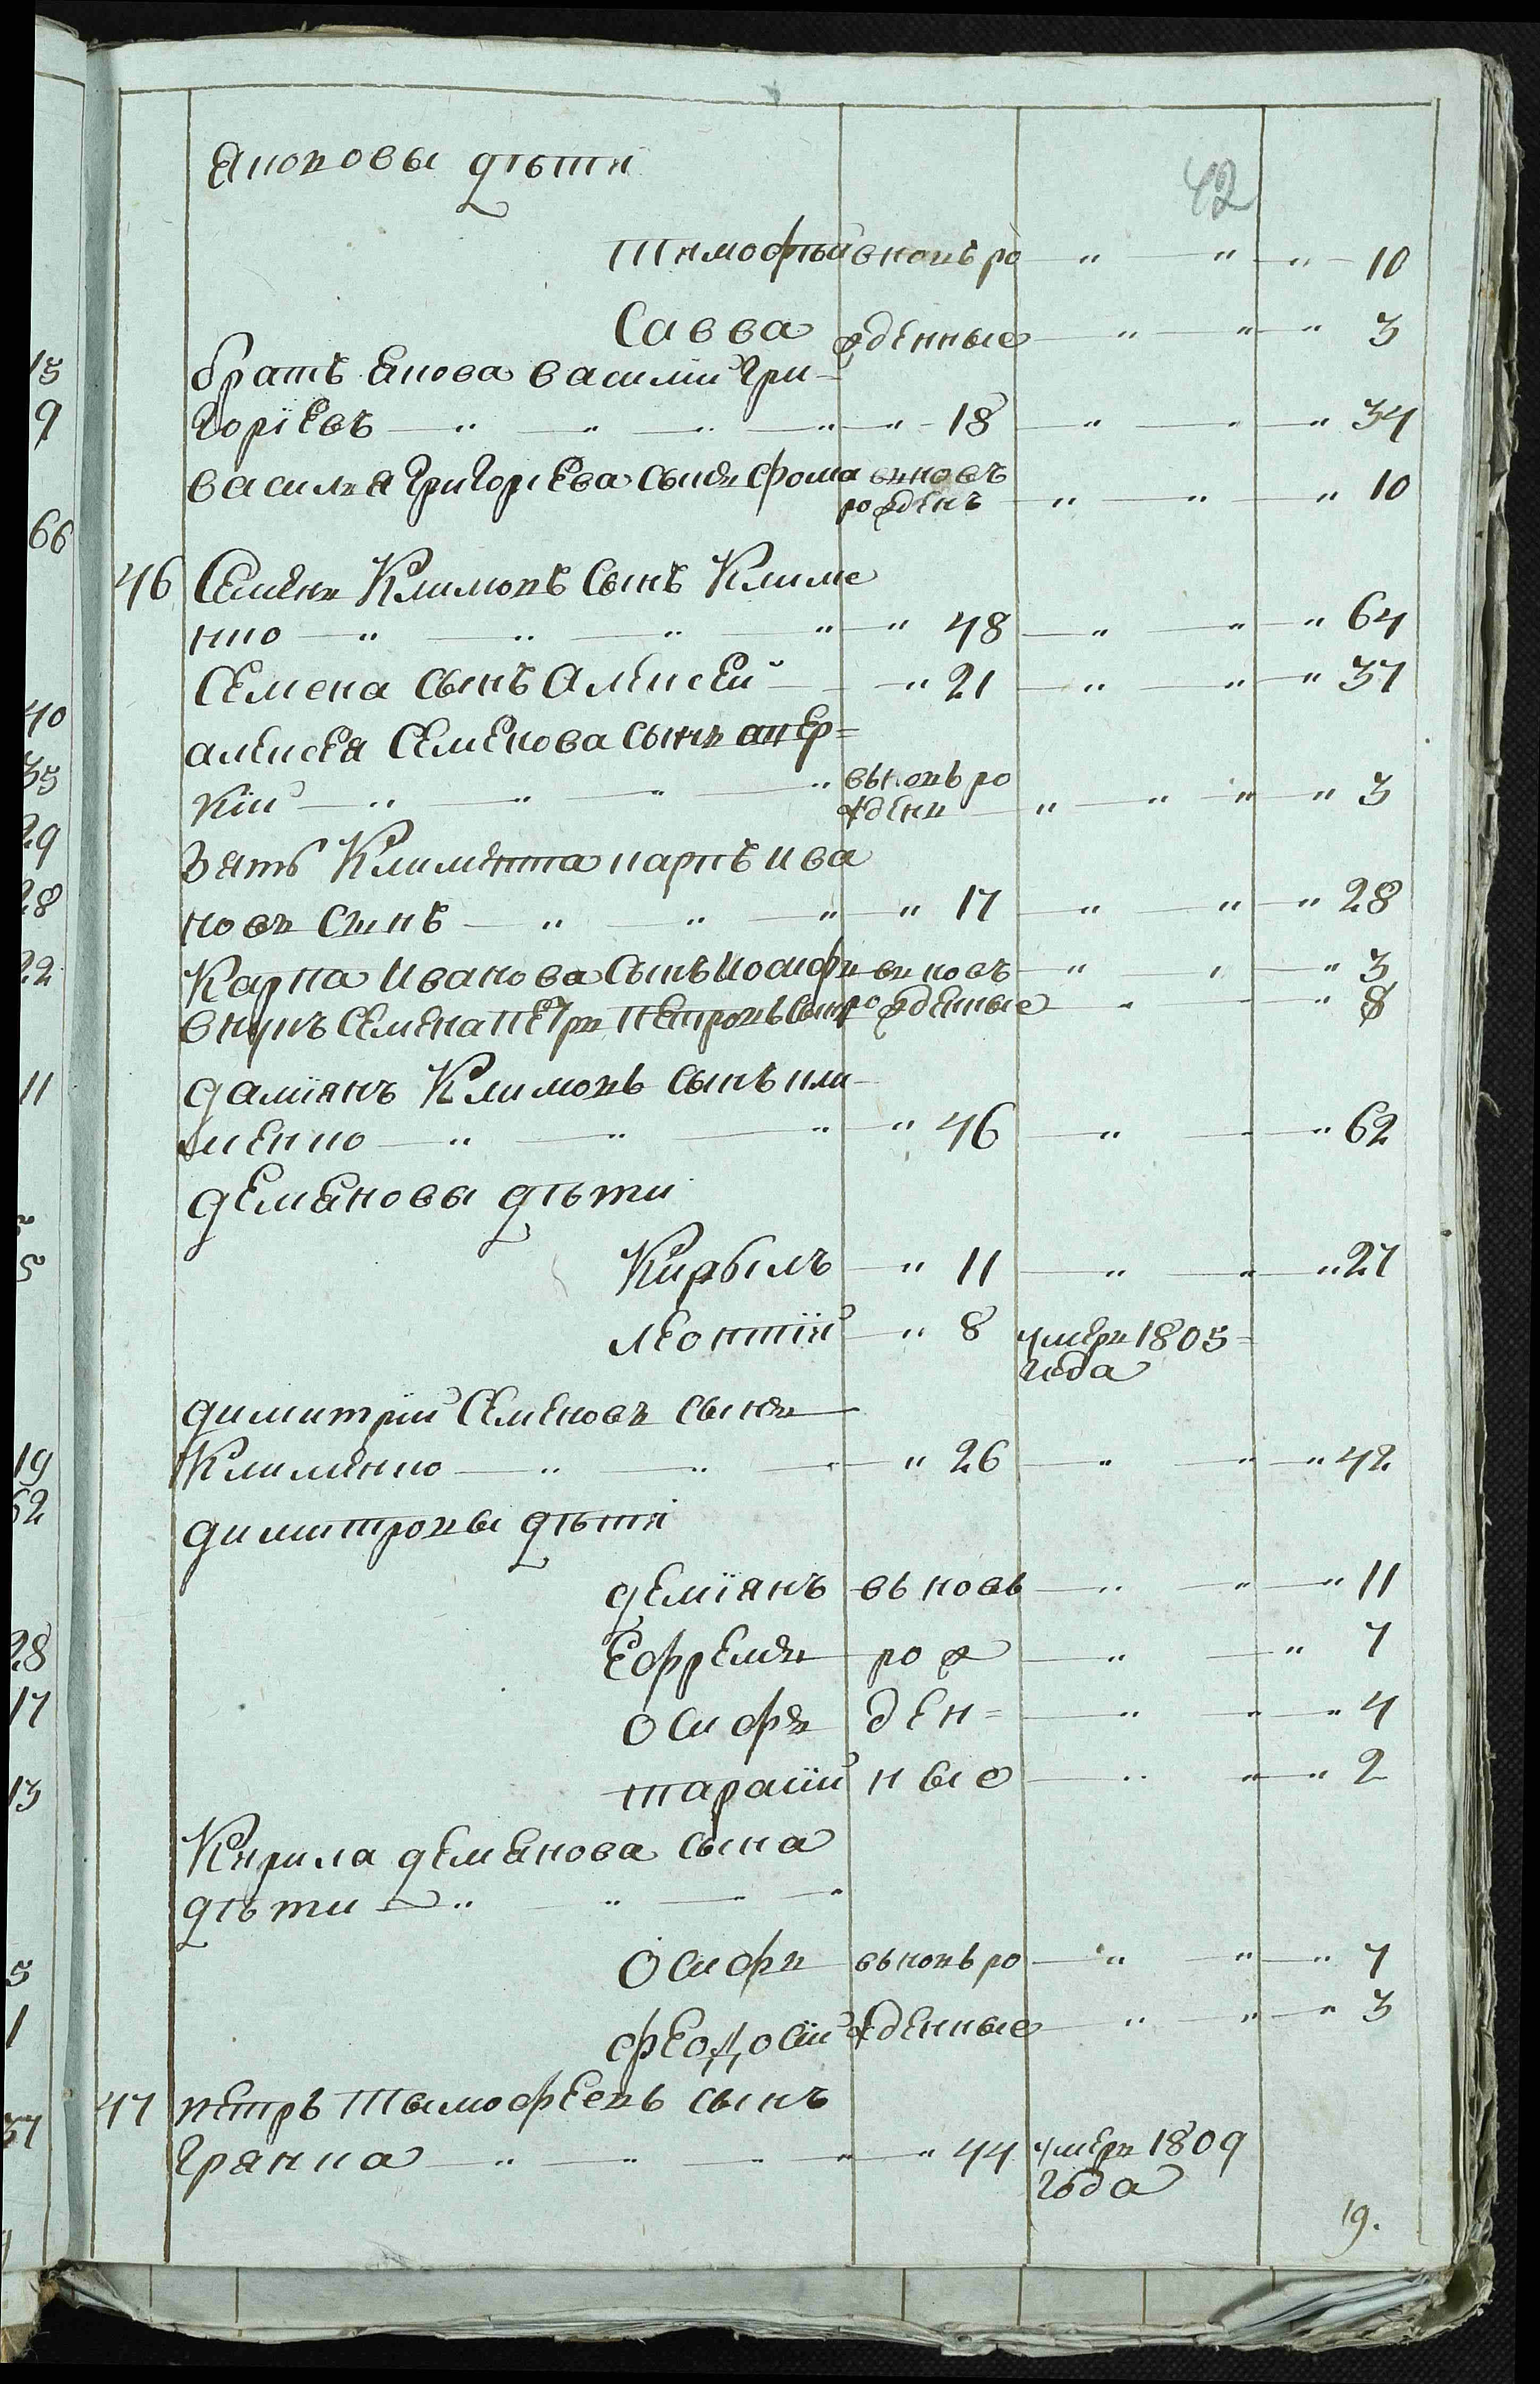 42
Якововы дѣти
Тимофѣй вновь ро " " " 10
Савва жденные " " " 3
братъ Якова Василий Гри-
горїевъ " " " " " 18 " " " 34
Василия Григорїева сынъ Фома вновь рожденъ " " " 10
46 Семенъ Климовъ сынъ Климе
нко " " " " " 48 " " " 64
Семена сынъ Алексей " 21 " " " 37
Алексея Семенова сынъ Авер=
кїй " " " " вьновь ро
ждень " " " " 3
Зять Климента Карпъ Ива
новъ сынъ " " " " 17 " " " 28
Карпа Иванова сынъ Иосифъ вновь " " " 3
внукъ Семена Петръ Петровъ сынъ рожденные " " " 8
Дамїянъ Климовъ сынъ Кли-
менко " " " " 46 " " " 62
Демяновы дѣти
Кирылъ " 11 " " " 27
Леонтїй " 8 умеръ 1805=
года
Димитрїй Семеновъ сынъ
Клименко " " " " 26 " " " 42
Димитровы дѣти
Демїянъ вьновь " " " 11
Ефремъ рож " " 7
Осифъ ден= " " " 4
Тарасїй ные " " " 2
Кирила Демянова сына
дѣти " " " "
Осифъ вьновь ро " " " 7
Феодосїй жденные " " " 3
47 Петръ Тымофеевъ сынъ
Грянка " " " " " 44 умеръ 1809
года
19.
15
9
66
40
35
29
28
22
11
5
19
62
28
17
13
5
1
37